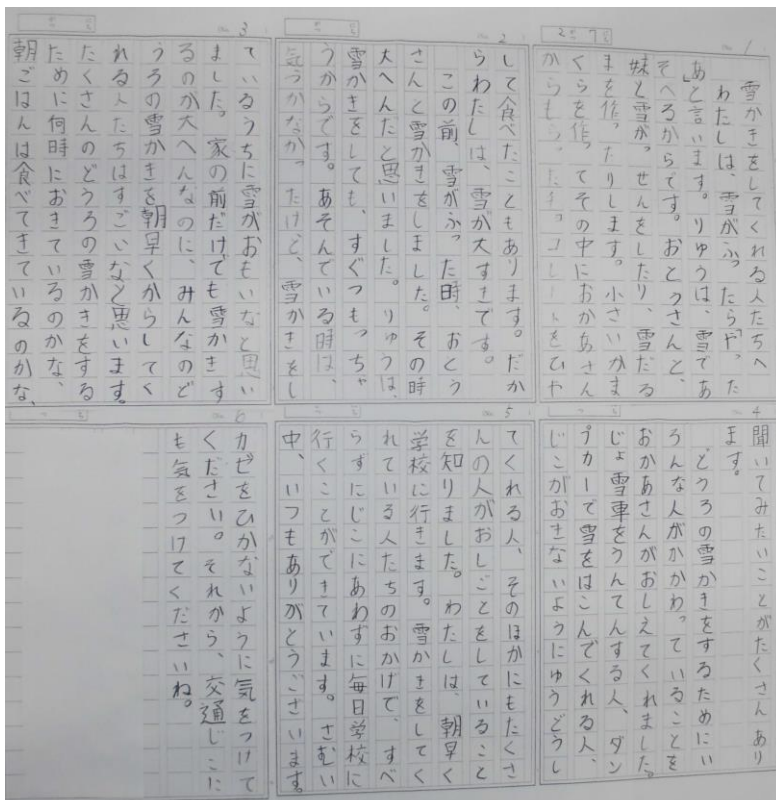 雪かきをしてくれる人たちへ
わたしは、雪がふったら「やった
あ」と言います。りゆうは、雪であ
そべるからです。おとうさんと、
妹と雪がっせんをしたり、雪だる
まを作ったりします。小さいかま
くらを作ってその中におかあさん
からもらったチョコレートをひや
して食べたこともあります。だか
らわたしは、雪が大すきです。
この前、雪がふった時、おとう
さんと雪かきをしました。その時
大へんだと思いました。りゆうは、
雪かきをしても、すぐつもっちゃ
うからです。あそんでいる時は、
気づかなかったけど、雪かきをし
ているうちに雪がおもいなと思い
ました。家の前だけでも雪かきす
るのが大へんなのに、みんなのど
うろの雪かきを朝早くからしてく
れる人たちはすごいなと思います。
たくさんのどうろの雪かきをする
ために何時におきているのかな、
朝ごはんは食べてきているのかな、
聞いてみたいことがたくさんあり
ます。
どうろの雪かきをするためにい
ろんな人がかかわっていることを
おかあさんがおしえてくれました。
じょ雪車をうんてんする人、ダン
プカーで雪をはこんでくれる人、
じこがおきないようにゆうどうし
てくれる人、そのほかにもたくさ
んの人がおしごとをしていること
を知りました。わたしは、朝早く
学校に行きます。雪かきをしてく
れている人たちのおかげで、すべ
らずにじこにあわずに毎日学校に
行くことができています。さむい
中、いつもありがとうございます。
カゼをひかないように気をつけて
ください。それから、交通じこに
も気をつけてくださいね。